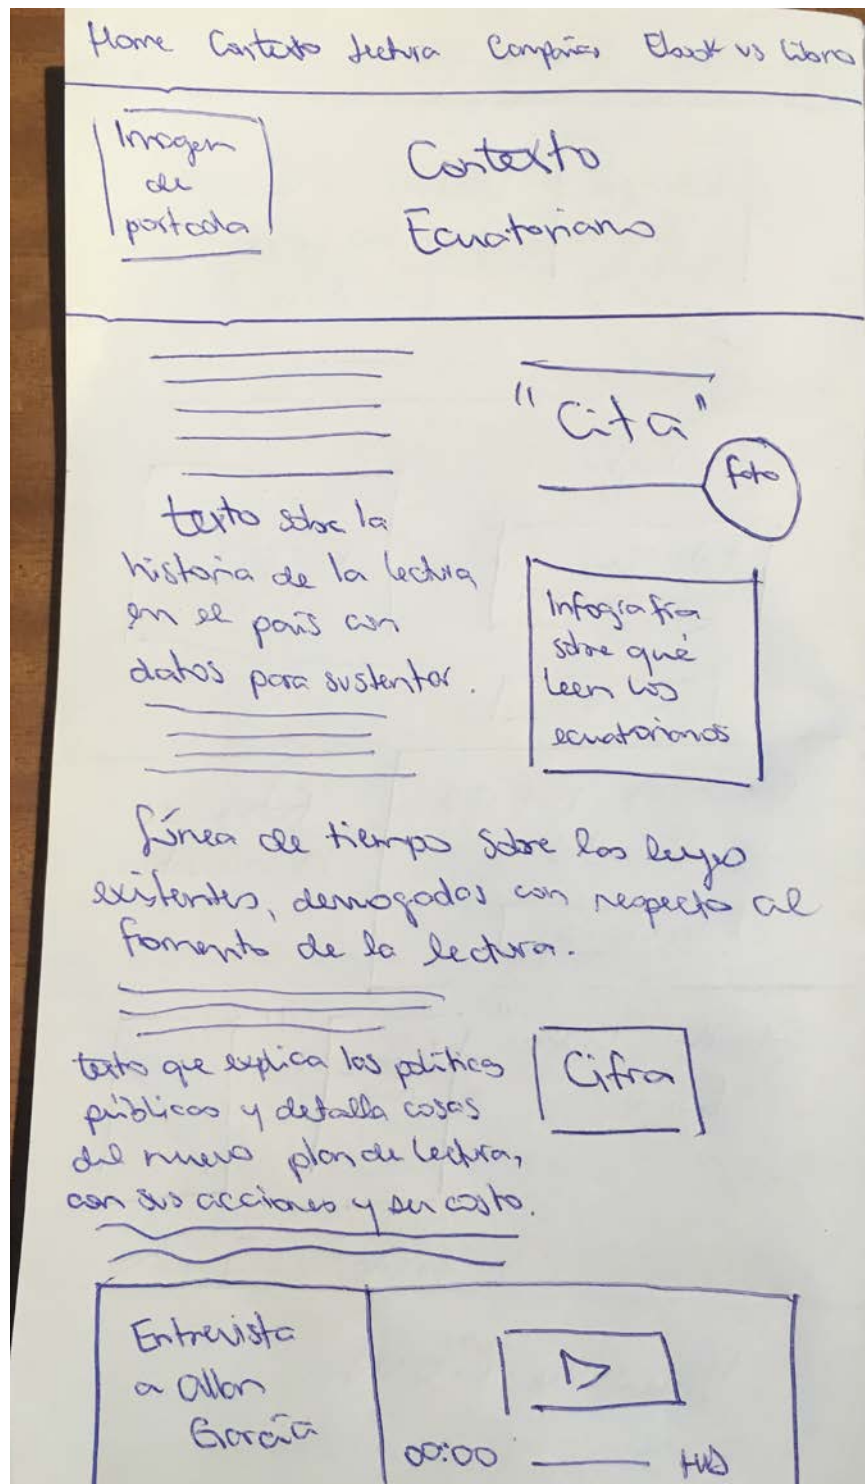 Home Contexto Lectura Campañas Ebook vs Libro
Imagen
de
portada
Contexto
Ecuatoriano
"Cita"
foto
texto sobre la
historia de la lectura
en el país con
datos para sustentar.
Infografía
sobre qué
leen los
ecuatorianos
Línea de tiempo sobre las leyes
existentes, derrogadas con respecto al
fomento de la lectura.
texto que explica las políticas
públicas y detalla cosas
del nuevo plan de lectura,
con sus acciones y su costo.
Cifra
Entrevista
a Allan
00:00